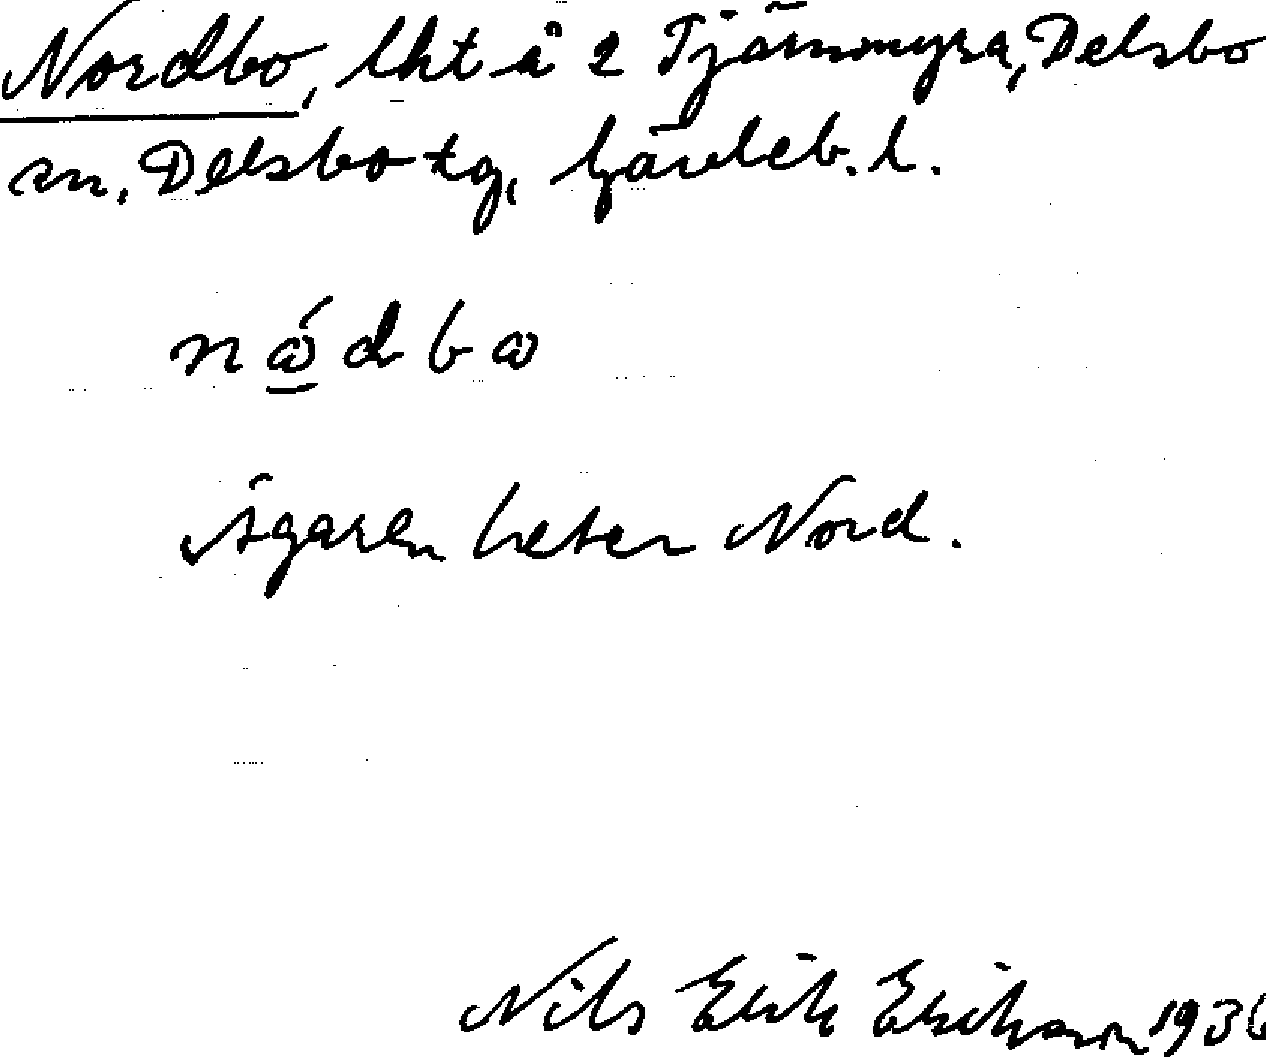 Nordbo, lht å 2 Tjärnmyra, Delsbo
sn, Delsbo tg, Gävleb. l.
nώdbω
Ägaren heter Nord.
Nils Erik Erikson 1936